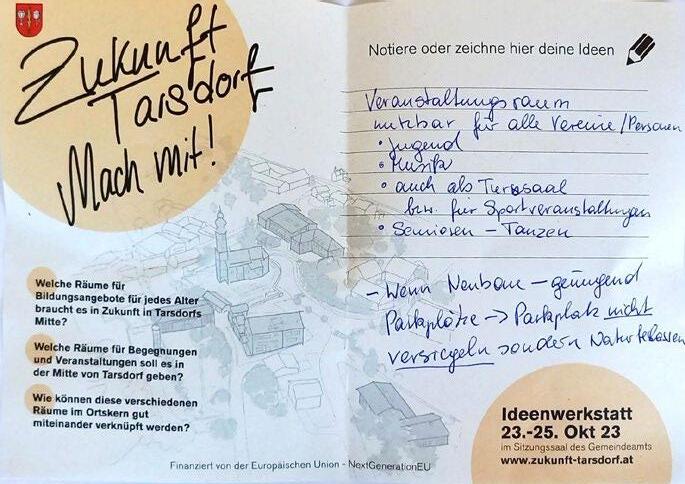 Zukunft
Tarsdorf
Mach mit!
Welche Räume für
Bildungsangebote für jedes Alter
braucht es in Zukunft in Tarsdorfs
Mitte?
Welche Räume für Begegnungen
und Veranstaltungen soll es in
der Mitte von Tarsdorf geben?
Wie können diese verschiedenen
Räume im Ortskern gut
miteinander verknüpft werden?
Notiere oder zeichne hier deine Ideen
Veranstaltungsraum
nutzbar für alle Vereine/Personen
• Jugend
• Musik
• auch als Turnsaal
bzw. für Sportveranstaltungen
• Senioren – Tanzen
– Wenn Neubau – genügend
Parkplätze → Parkplatz nicht
versiegeln sondern Natur belassen
Ideenwerkstatt
23.-25. Okt 23
im Sitzungssaal des Gemeindeamts
www.zukunft-tarsdorf.at
Finanziert von der Europäischen Union - NextGenerationEU